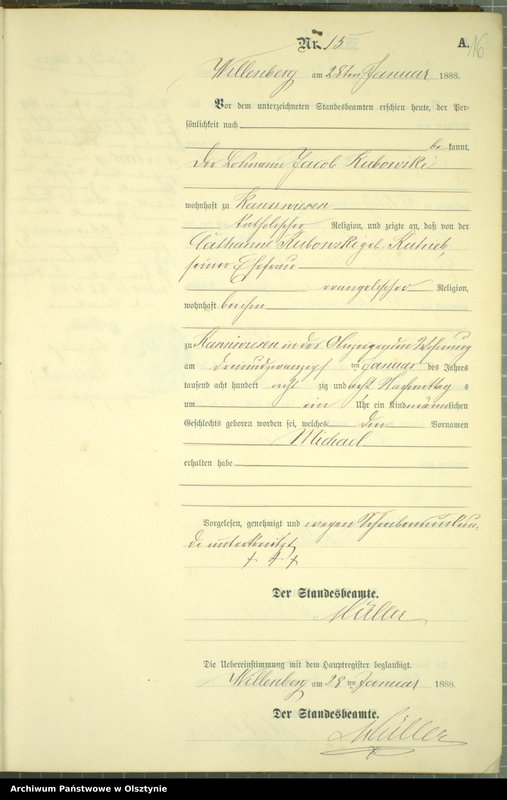 Nr. 15
A.
16
Willenberg am 28ten Januar 1888.
Vor dem unterzeichneten Standesbeamten erschien heute, der Per-
sönlichkeit nach
be kannt,
Der Losmann Jacob Kubowski
wohnhaft zu Kannwiesen
katholischer Religion, und zeigte an, daß von der
Catharine Kubowski geb.
seiner Ehefrau
evangelischer Religion,
wohnhaft bei ihm
zu Kannwiesen in des Anzeigenden Wohnung
am dreiundzwanzigsten Januar des Jahres
tausend acht hundert acht zig und acht Nachmittag s
um ein Uhr ein Kind männlichen
Geschlechts geboren worden sei, welches den Vornamen
Michael
erhalten habe
Vorgelesen, genehmigt und wegen Schreibensunkun-
de unterkreuzt
+ + +
Der Standesbeamte.
Müller
Die Uebereinstimmung mit dem Hauptregister beglaubigt.
Willenberg am 28 ten Januar 1888.
Der Standesbeamte.
Müller
Archiwum Państwowe w Olsztynie